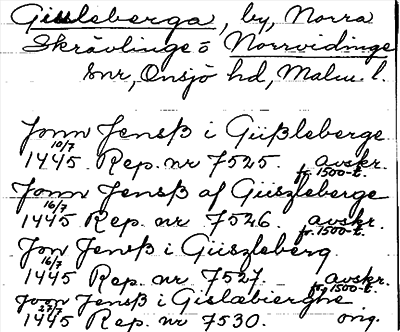 Gissleberga, by, Norra
Skrävlinge o Norrvidinge
snr, Onsjö hd, Malm. l.
Jonn Jensß i Güßleberge
10/7
1445 Rep. nr 7525. avskr. fr. 1500-t.
Jonn Jensß af Güszleberge
16/7
1445 Rep. nr 7526. avskr. fr. 1500-t.
Jon Jensß i Güszleberg
16/7
1445 Rep. nr 7527. avskr. fr. 1500-t.
Joon Jensß i Gislæbierghe
27/7
1445 Rep. nr 7530 orig.